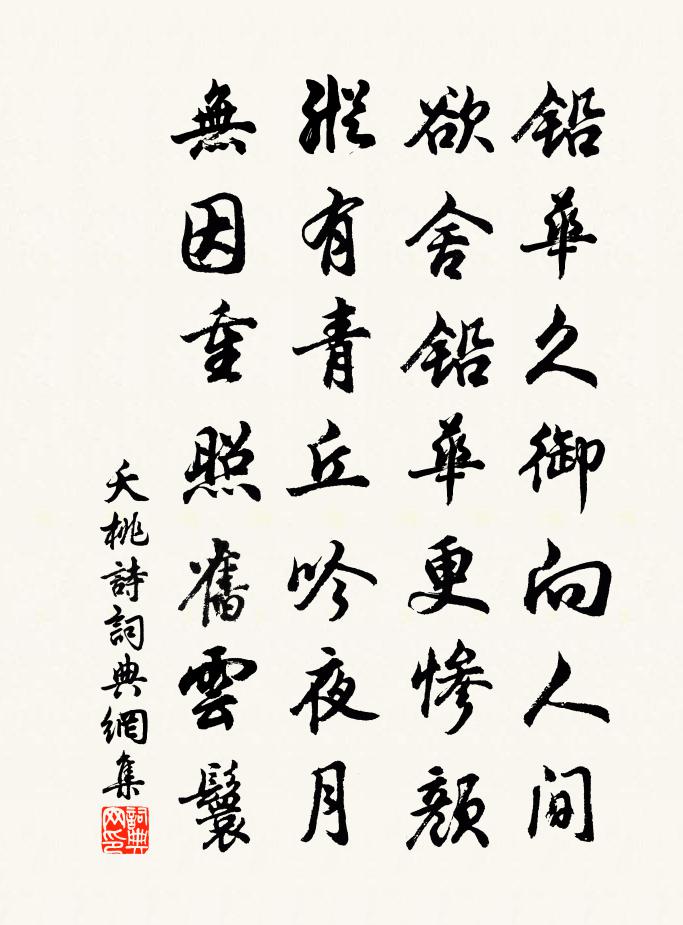 鉛華久御向人間
欲舍鉛華更慘顏
縱有青丘吟夜月
無因重照舊雲鬟
夭桃詩詞典網集
詞典网印